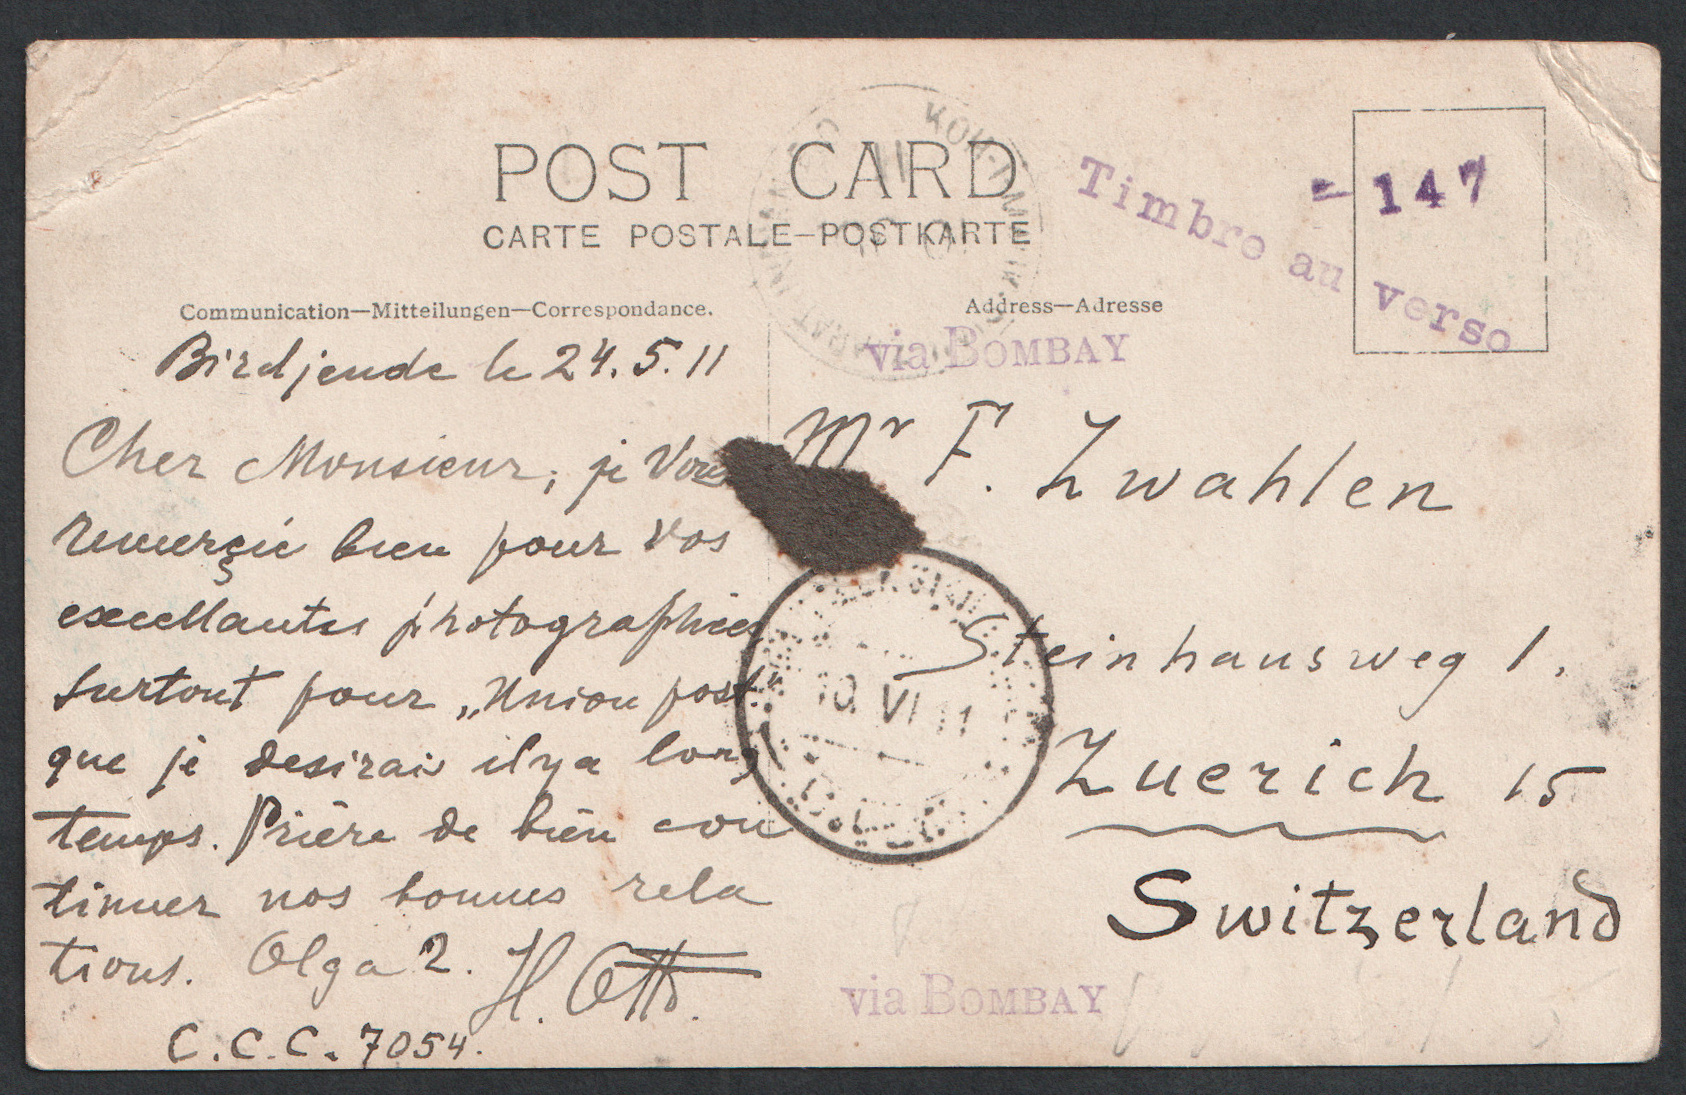 POST CARD
CARTE POSTALE—POSTKARTE
Timbre au verso
= 147
Communication—Mitteilungen—Correspondance.
Address—Adresse
via BOMBAY
Birdjende le 24.5.11
Cher Monsieur, je Vous
remerçie bien pour vos
excellantes photographies
surtout pour „Union post."
que je desirai il y a long
temps. Prière de bien con
tinuer nos bonnes rela
tions. Olga 2. H. Otto.
C.C.C. 7054.
Mr F. Zwahlen
Steinhausweg 1.
Zuerich 15
Switzerland
10 VI 11
via BOMBAY